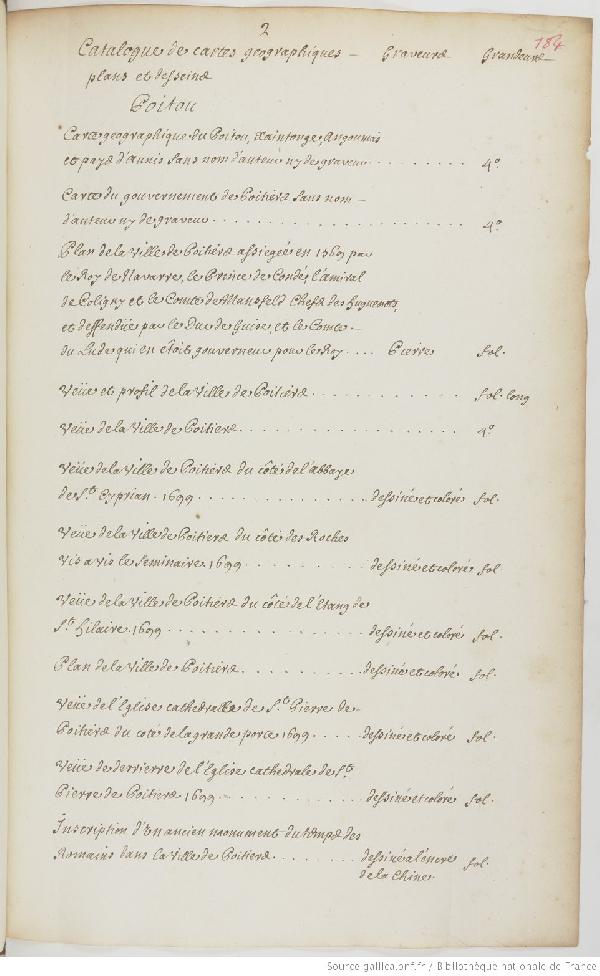 2
184
Catalogue de cartes geographiques – Graveurs Grandeurs
plans et desseins
Poitou
Carte geographique du Poitou, Xaintonge, Angoumois
et pays d'Aunis sans nom d'auteur ny de graveur . . . . . . . . 4º
Carte du gouvernement de Poitiers sans nom –
d'auteur ny de graveur . . . . . . . . . . . . . . . . . . . . . . . 4º
Plan de la Ville de Poitiers assiegée en 1569 par
le Roy de Navarre, le Prince de Condé, l'amiral
de Coligny et le Comte de Mansfeld Chefs des huguenots,
et deffendüe par le Duc de Guise, et le Comte –
du Lude qui en étoit gouverneur pour le Roy . . . . Pierre fol.
Veüe et profil de la Ville de Poitiers . . . . . . . . . . . . fol. long
Veüe de la Ville de Poitiers . . . . . . . . . . . . . . . . . . 4º
Veüe de la Ville de Poitiers du côté de l'abbaye
de St. Cyprian. 1699 . . . . . . . . . . . . . dessiné et coloré fol.
Veüe de la Ville de Poitiers du côté des Roches
vis a vis le Seminaire 1699 . . . . . . . . . . dessiné et coloré fol
Veüe de la Ville de Poitiers du côté de l'Etang de
St. Hilaire 1699 . . . . . . . . . . . . . . . dessiné et coloré fol.
Plan de la Ville de Poitiers . . . . . . . . . dessiné et coloré fol.
Veüe de l'Eglise cathedralle de St. Pierre de –
Poitiers du coté de la grande porte 1699 . . . . . dessiné et coloré fol.
Veüe de derrierre de l'Eglise cathedrale de St.
Pierre de Poitiers 1699 . . . . . . . . . . . dessiné et coloré fol.
Inscription d'un ancien monument du temps des
Romains dans la Ville de Poitiers . . . . . . . dessiné a l'encre fol.
de la Chine.
Source gallica.bnf.fr / Bibliothèque nationale de France